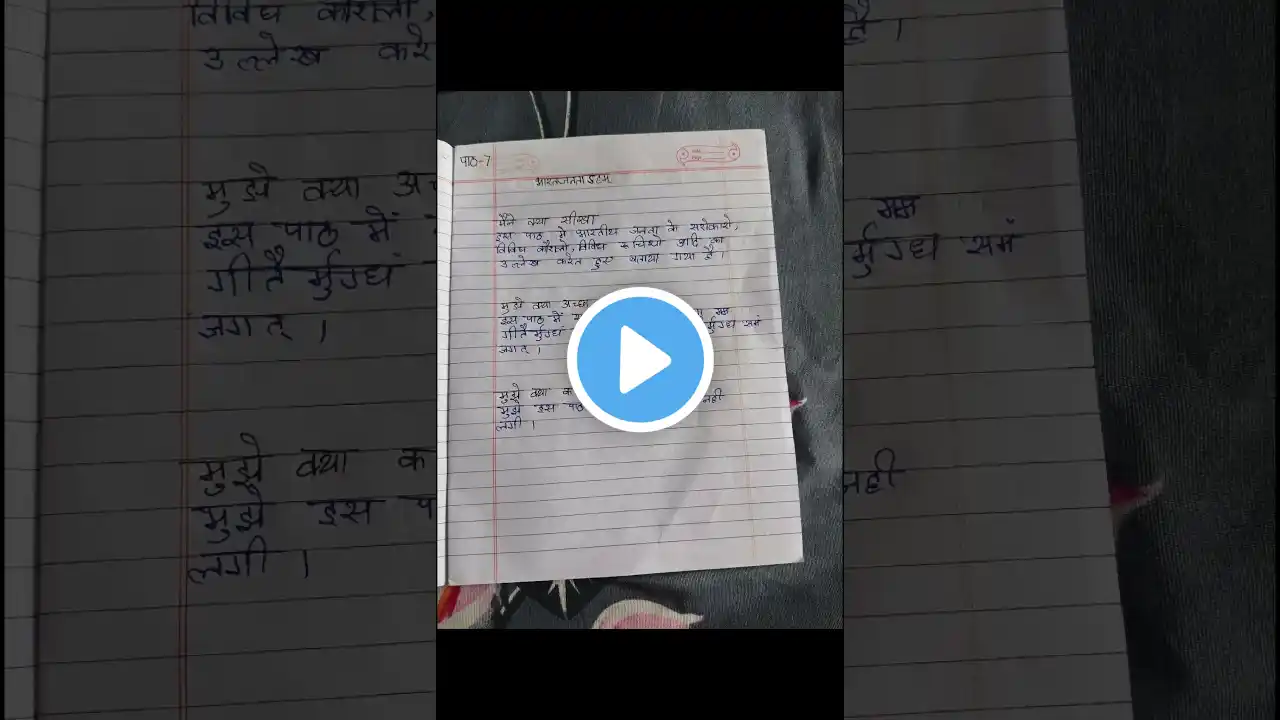 पाठ-7
भारतजनताऽहम्
मैने क्या सीखा
इस पाठ में भारतीय जनता के सरोकारो,
विविध कौशलो, विविध रूचियों आदि का
उल्लेख करते हुए बताया गया है।
मुझे क्या अच्छा
इस पाठ में
गीतैर्मुग्धं समं
जगत्।
मुझे क्या
मुझे इस पाठ नही
लगी।